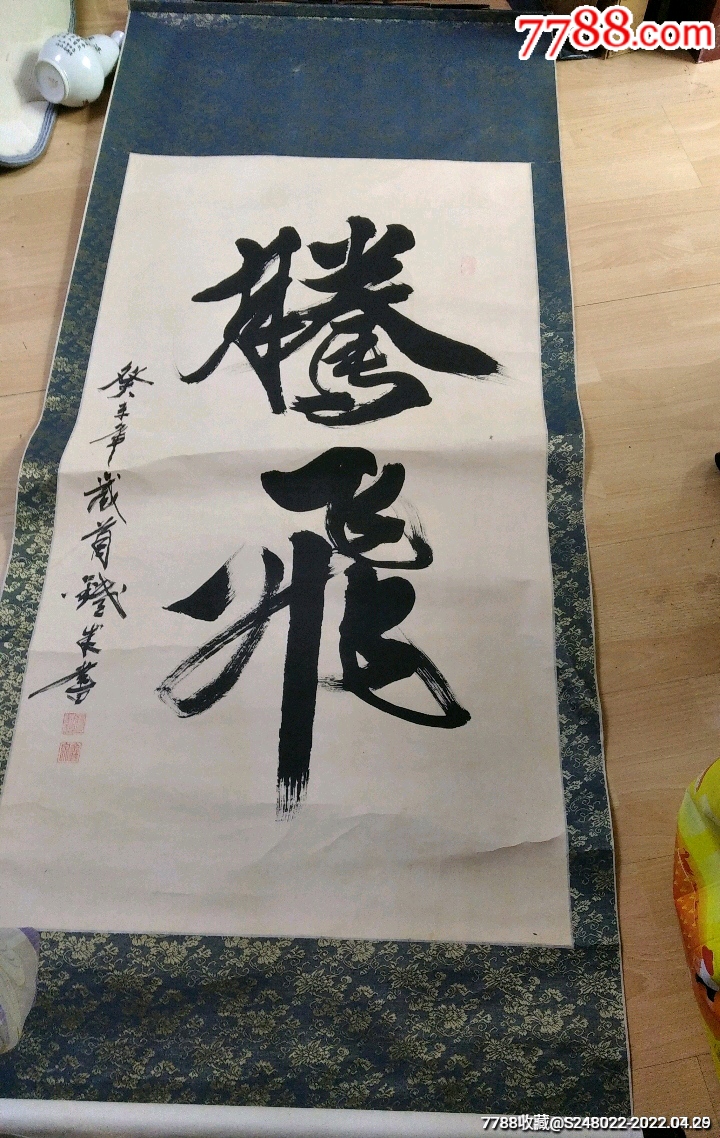 7788.com
騰飛
癸未年歲首鐵成書
7788收藏@S248022-2022.04.29